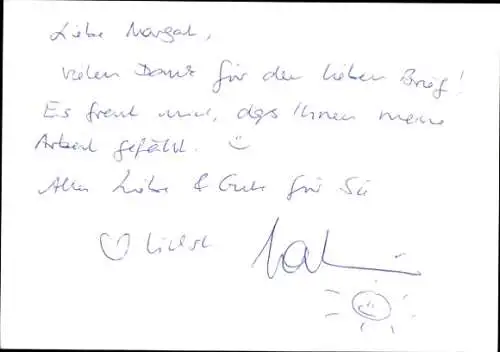 Liebe Margat,
vielen Dank für den lieben Brief!
Es freut mich, dass Ihnen meine
Arbeit gefällt. ☺
Alles Liebe & Gute für Sie
♡ lichst